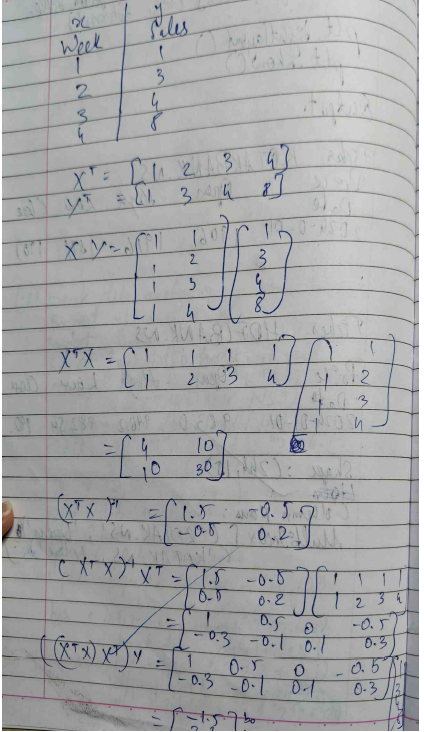 x y
Week Sales
1 1
2 3
3 4
4 8
X^T = [1 2 3 4]
Y^T = [1. 3 4 8]
X·Y = [1 1] [1]
1 2 3
1 3 4
1 4 8
X^T X = [1 1 1 1] [1 1]
1 2 3 4 1 2
1 3
1 4
= [4 10]
10 30
(X^T X)^-1 = [1.5 -0.5]
-0.5 0.2
(X^T X)^-1 X^T = [1.5 -0.5] [1 1 1 1]
0.5 0.2 1 2 3 4
= [1 0.5 0 -0.5]
-0.3 -0.1 0.1 0.3
((X^T X) X^T) Y = [1 0.5 0 -0.5]
-0.3 -0.1 0.1 0.3
= [-1.5] b0